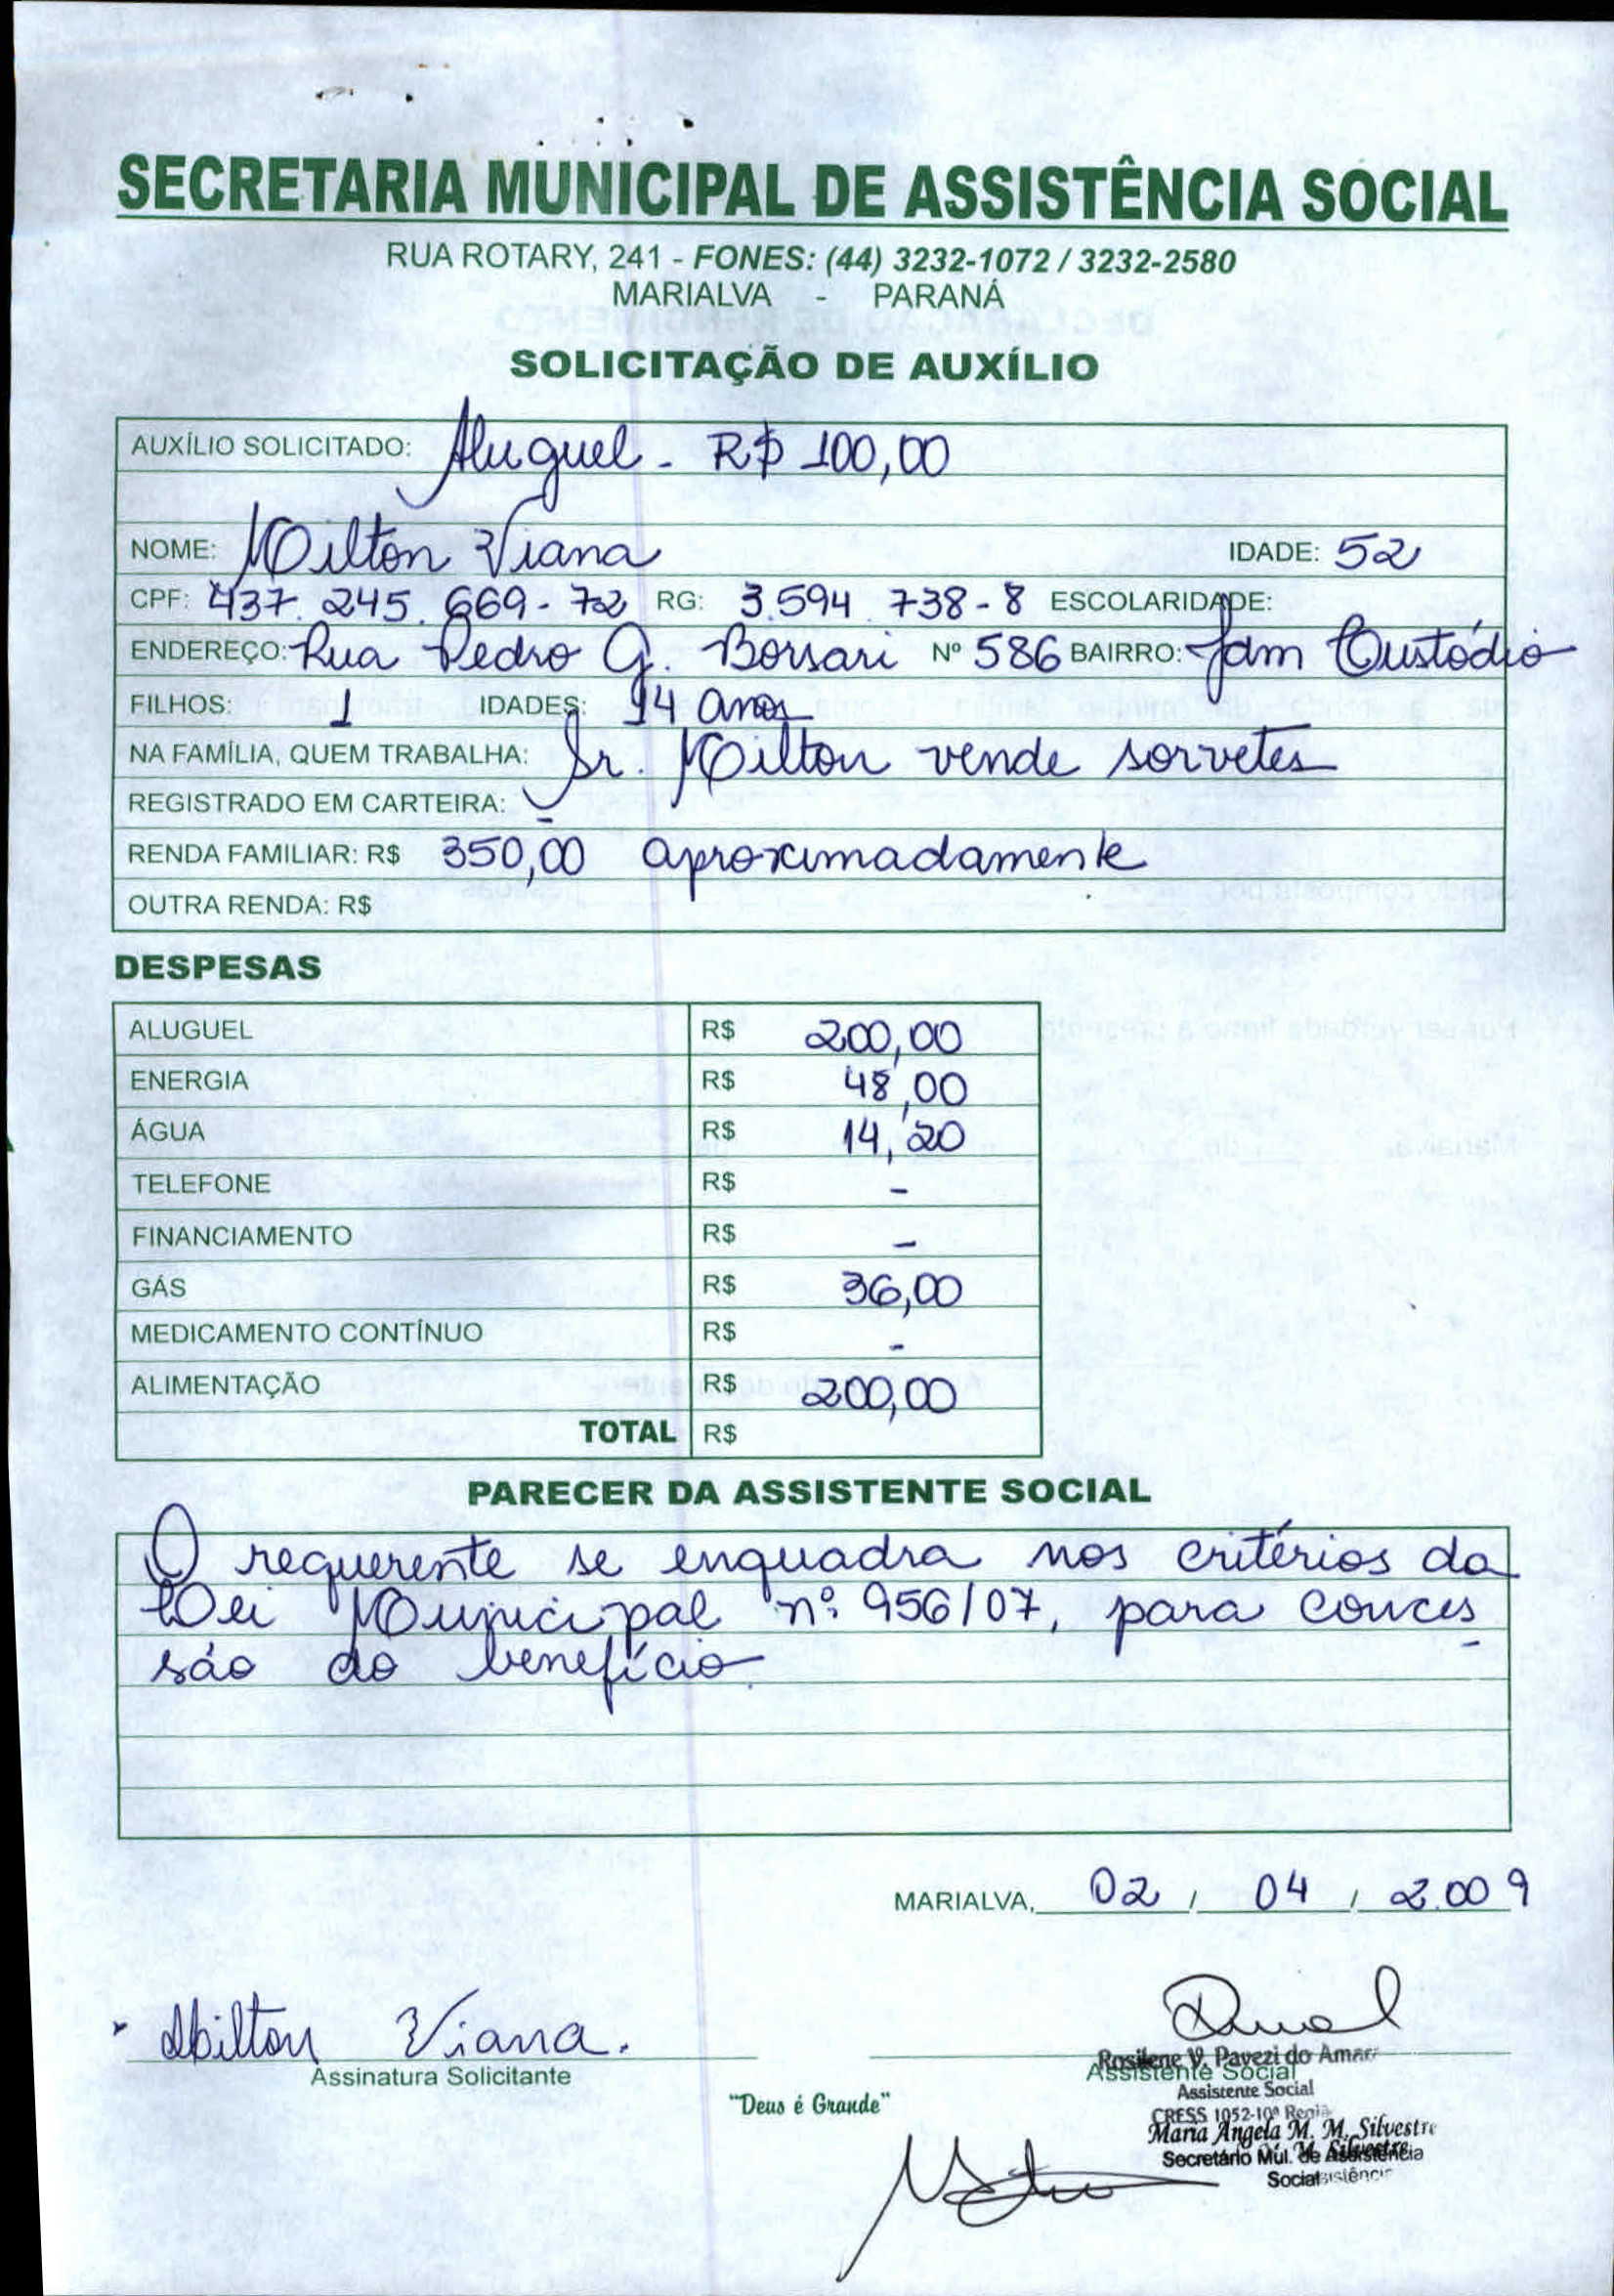 SECRETARIA MUNICIPAL DE ASSISTÊNCIA SOCIAL
RUA ROTARY, 241 - FONES: (44) 3232-1072 / 3232-2580
MARIALVA - PARANÁ
SOLICITAÇÃO DE AUXÍLIO
AUXÍLIO SOLICITADO: Aluguel - R$ 100,00
NOME: Milton Viana IDADE: 52
CPF: 437.245.669-72 RG: 3.594.738-8 ESCOLARIDADE:
ENDEREÇO: Rua Pedro G. Borsari Nº 586 BAIRRO: Jdm Custódio
FILHOS: 1 IDADES: 14 anos
NA FAMÍLIA, QUEM TRABALHA: Sr. Milton vende sorvetes
REGISTRADO EM CARTEIRA: -
RENDA FAMILIAR: R$ 350,00 aproximadamente
OUTRA RENDA: R$
DESPESAS
ALUGUEL R$ 200,00
ENERGIA R$ 48,00
ÁGUA R$ 14,20
TELEFONE R$ -
FINANCIAMENTO R$ -
GÁS R$ 36,00
MEDICAMENTO CONTÍNUO R$ -
ALIMENTAÇÃO R$ 200,00
TOTAL R$
PARECER DA ASSISTENTE SOCIAL
O requerente se enquadra nos critérios da
Lei Municipal nº 956/07, para conces
são do benefício.
MARIALVA, 02 / 04 / 2.009
Milton Viana.
Assinatura Solicitante
Rosilene V. Pavezi do Amar
Assistente Social
Assistente Social
CRESS 1052-10ª Regiã
"Deus é Grande"
Maria Angela M. M. Silvestre
Secretário Mul. de Assistência
Social